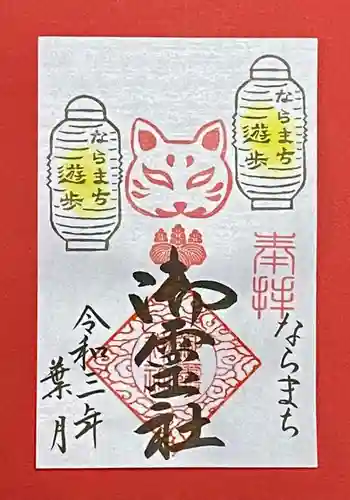 ならまち
遊歩
ならまち
遊歩
奉拝
ならまち
御霊社
令和二年
葉月